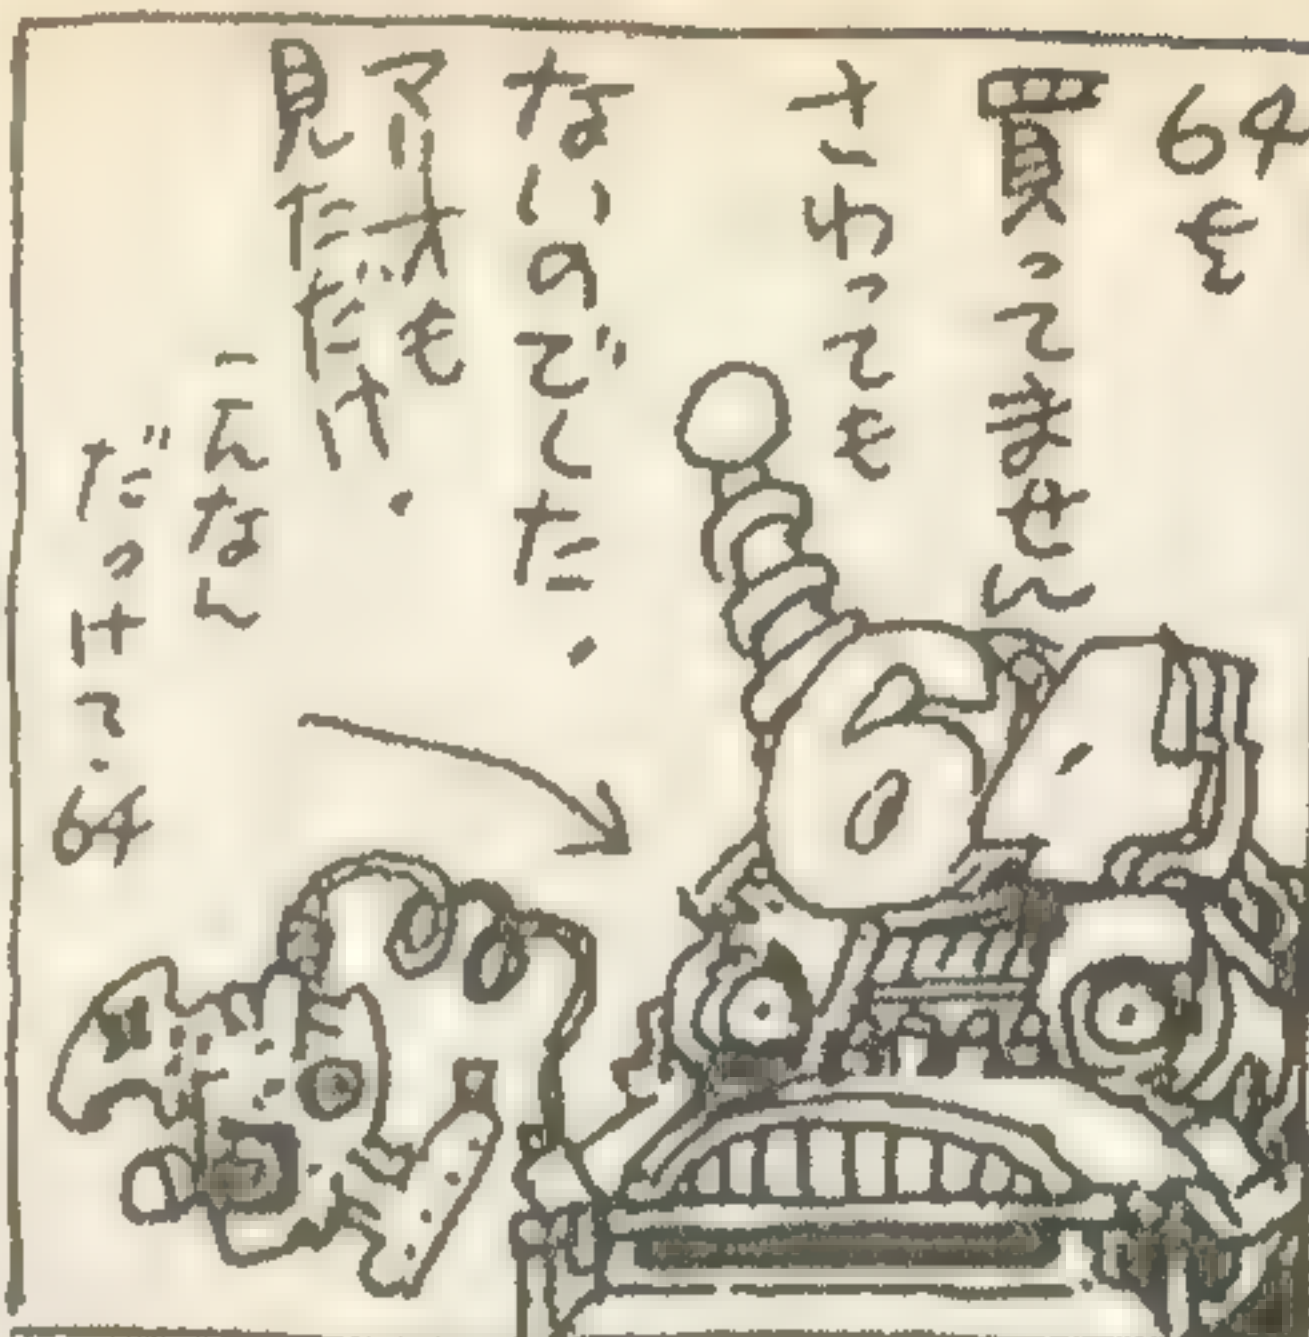 64を
買ってません
さわっても
ないのでした.
マリオも
見ただけ.
こんなん
だっけて.64
64